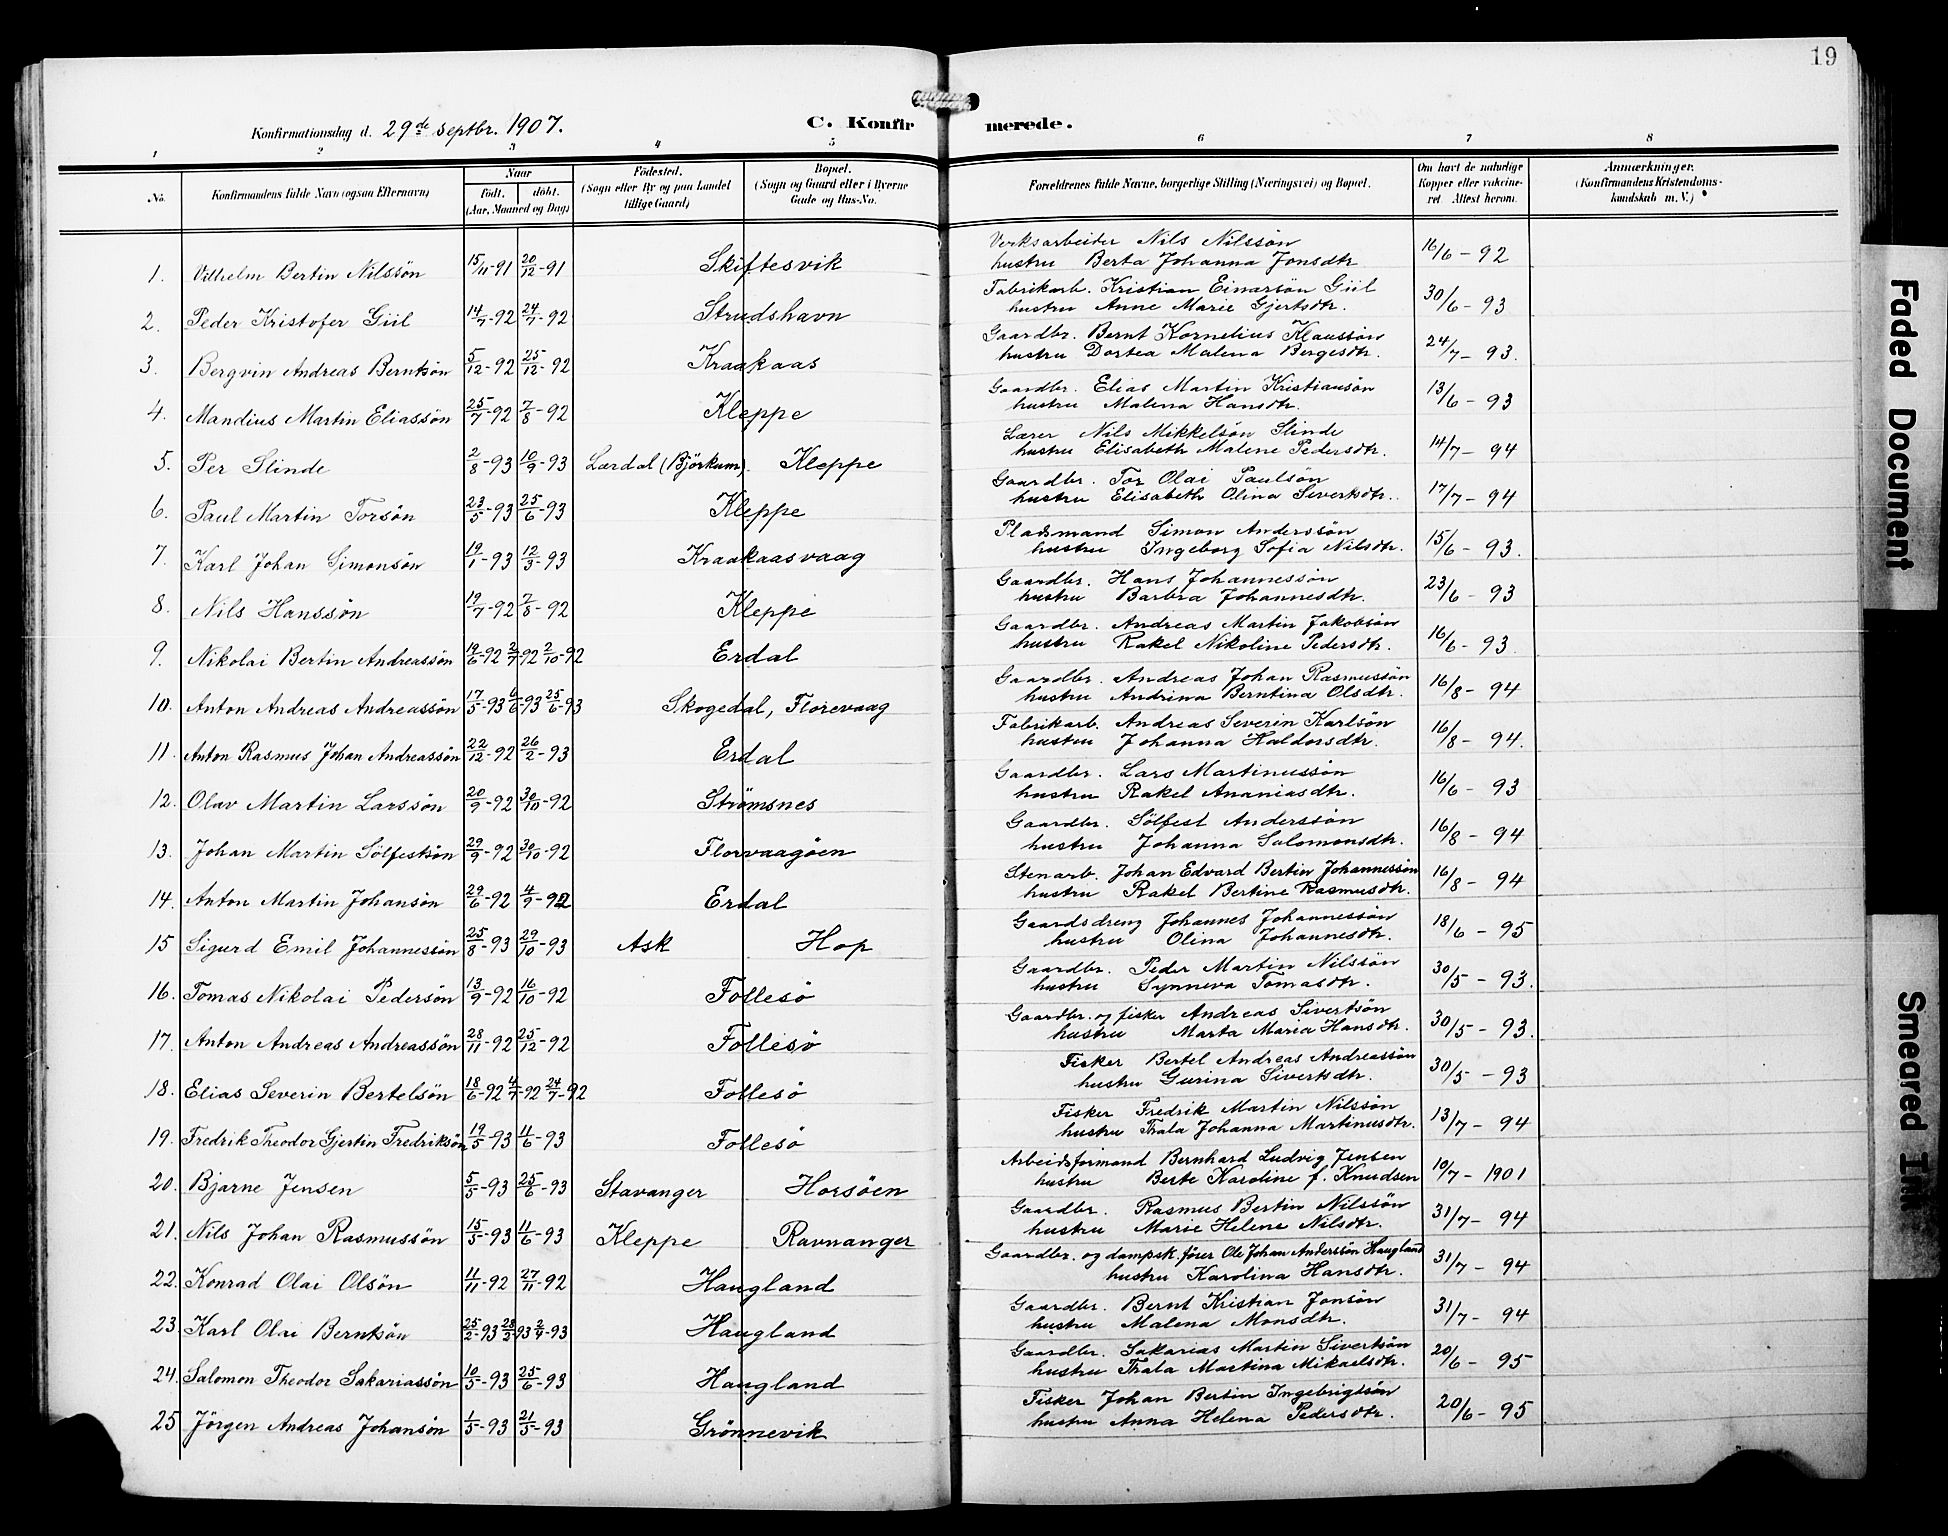 19
Konfirmationsdag d. 29de septbr. 1907.
C. Konfirmerede.
1 2 3 4 5 6 7 8
No.
Konfirmandens fulde Navn (ogsaa Efternavn)
Naar
født. døbt.
(Aar, Maaned og Dag)
Fødested.
(Sogn eller By og paa Landet
tillige Gaard)
Bopæl.
(Sogn og Gaard eller i Byerne
Gade og Hus-No.
Forældrenes fulde Navne, borgerlige Stilling (Næringsvei) og Bopæl.
Om havt de naturlige
Kopper eller vakcine-
ret. Attest herom.
Anmærkninger.
(Konfirmandens Kristendoms-
kundskab m. V.)
1. Vilhelm Bertin Nilssön 15/11-91 20/12-91 Skiftesvik Verksarbeider Nils Nilssøn 16/6-92
hustru Berta Johanna Jonsdtr
2. Peder Kristofer Giil 14/7-92 24/7-92 Strudshavn Fabrikarb. Kristian Einarsøn Giil 30/6-93
hustru Anne Marie Gjertsdtr.
3. Bergvin Andreas Berntsøn 5/12-92 25/12-92 Kraakaas Gaardbr. Bernt Kornelius Klaussøn 24/7-93.
hustru Dortea Malena Bergesdtr.
4. Mandius Martin Eliassøn 25/7-92 7/8-92 Kleppe Gaardbr. Elias Martin Kristiansøn 13/6-93
hustru Malena Hansdtr.
5. Per Slinde 2/8-93 10/9-93 Lærdal (Björkum). Kleppe Lærer Nils Mikkelsøn Slinde 14/7-94
hustru Elisabeth Malene Pedersdtr.
6. Paul Martin Torsøn 23/5-93 25/6-93 Kleppe Gaardbr. Tor Olai Paulsøn 17/7-94
hustru Elisabeth Olina Sivertsdtr.
7. Karl Johan Simonsøn 19/1-93 12/3-93 Kraakaasvaag Pladsmand Simon Anderssøn 15/6-93.
hustru Ingeborg Sofia Nilsdtr.
8. Nils Hanssøn 19/7-92 7/8-92 Kleppe Gaardbr. Hans Johannessøn 23/6-93
hustru Barbra Johannesdtr.
9. Nikolai Bertin Andreassøn 19/6-92 2/7-92 2/10-92 Erdal Gaardbr. Andreas Martin Jakobsøn 16/6-93.
hustru Rakel Nikoline Pedersdtr.
10. Anton Andreas Andreassøn 17/5-93 6/6-93 25/6-93 Skogedal, Florevaag Gaardbr. Andreas Johan Rasmussøn 16/8-94
hustru Andrina Berntina Olsdtr.
11. Anton Rasmus Johan Andreassøn 22/12-92 26/2-93 Erdal Fabrikarb. Andreas Severin Karlsøn 16/8-94.
hustru Johanna Haldorsdtr.
12. Olav Martin Larssøn 20/9-92 30/10-92 Strømsnes Gaardbr. Lars Martinussøn 16/6-93
hustru Rakel Ananiasdtr.
13. Johan Martin Sölfestsøn 29/9-92 30/10-92 Florvaagöen Gaardbr. Sölfest Anderssøn 16/8-94
hustru Johanna Salomonsdtr.
14. Anton Martin Johansøn 29/6-92 4/9-92 Erdal Stenarb. Johan Edvard Bertin Johannessøn 16/8-94
hustru Rakel Bertine Rasmusdtr.
15 Sigurd Emil Johannessøn 25/8-93 29/10-93 Ask Hop Gaardsdreng Johannes Johannessøn 18/6-95
hustru Olina Johannesdtr.
16. Tomas Nikolai Pedersøn 13/9-92 16/10-92 Follesø Gaardbr. Peder Martin Nilssøn 30/5-93.
hustru Synneva Tomasdtr.
17. Anton Andreas Andreassøn 28/11-92 25/12-92 Follesø Gaardbr. og fisker Andreas Sivertsøn 30/5-93.
hustru Marta Maria Hansdtr.
18. Elias Severin Bertelsøn 18/6-92 4/7-92 24/7-92 Follesø Fisker Bertel Andreas Andreassøn 30/5-93
hustru Gurina Sivertsdtr.
19. Fredrik Theodor Gjertin Fredriksøn 19/5-93 11/6-93 Follesø Fisker Fredrik Martin Nilssøn 13/7-94
hustru Thala Johanna Martinusdtr.
20. Bjarne Jensen 5/5-93 25/6-93 Stavanger Horsöen Arbeidsformand Bernhard Ludvig Jensen 10/7-1901
hustru Berte Karoline f. Knudsen
21. Nils Johan Rasmussøn 15/5-93 11/6-93 Kleppe Ravnanger Gaardbr. Rasmus Bertin Nilssøn 31/7-94
hustru Marie Helene Nilsdtr.
22. Konrad Olai Olsøn 11/11-92 27/11-92 Haugland Gaardbr. og dampsk.fører Ole Johan Anderssøn Haugland 31/7-94
hustru Karolina Hansdtr.
23. Karl Olai Berntsøn 25/2-93 28/2-93 2/4-93 Haugland Gaardbr. Bernt Kristian Jonsøn 31/7-94
hustru Malena Monsdtr.
24. Salomon Theodor Sakariassøn 10/5-93 25/6-93 Haugland Gaardbr. Sakarias Martin Sivertsøn 20/6-95
hustru Thala Martina Mikaelsdtr.
25 Jörgen Andreas Johansøn 1/5-93 21/5-93 Grönnevik Fisker Johan Bertin Ingebrigtsøn 20/6-95
hustru Anna Helena Pedersdtr.
Faded Document
Smeared Ink